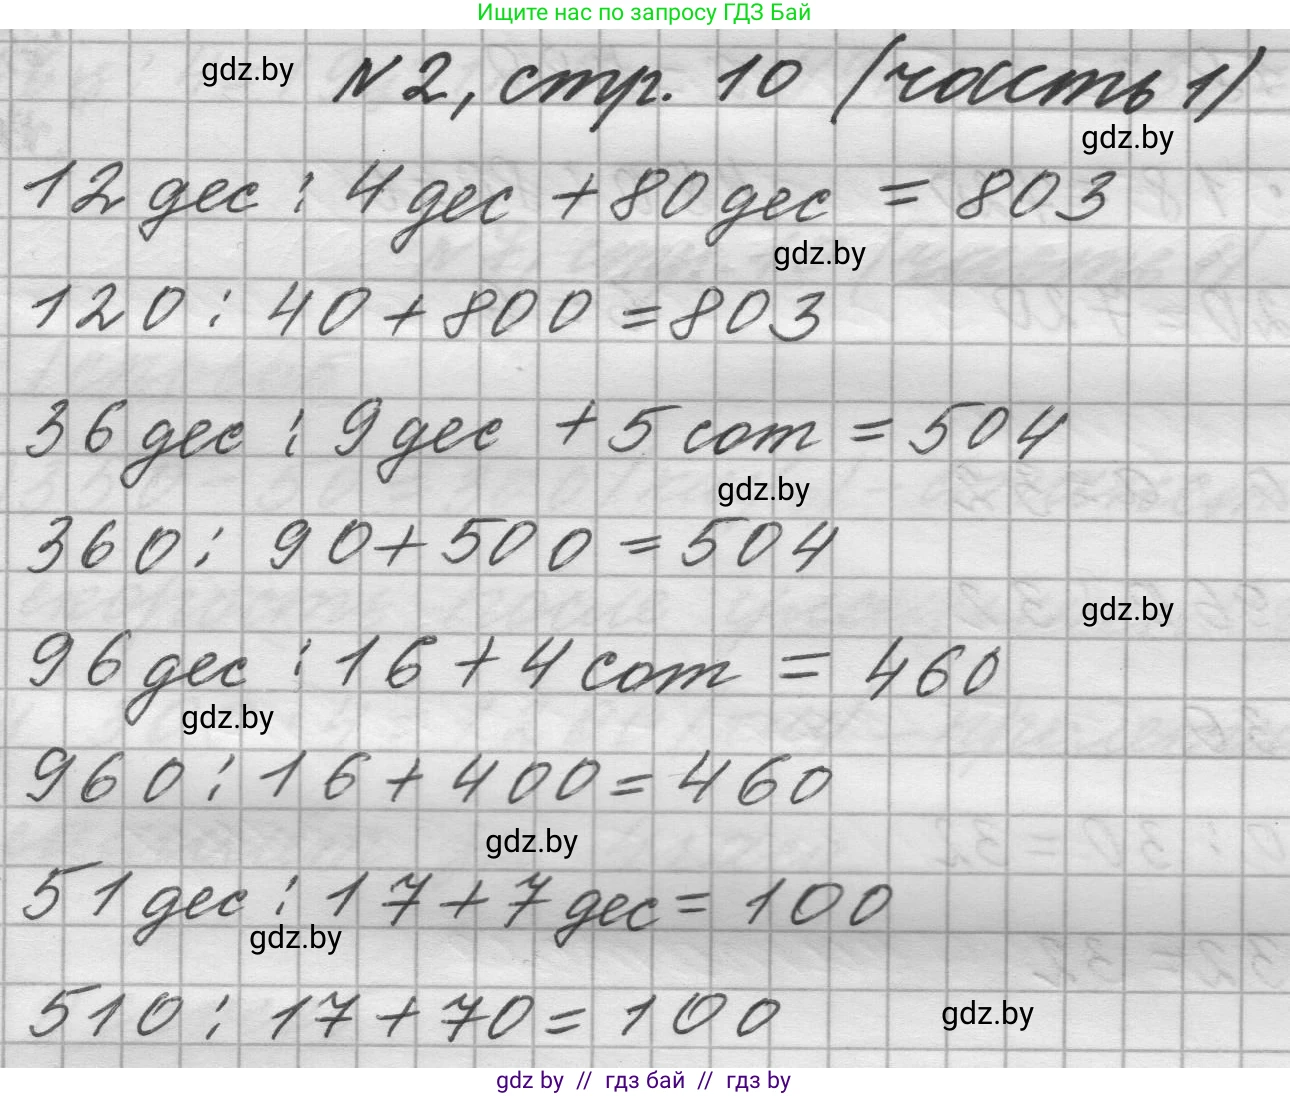 Ищите нас по запросу ГДЗ Бай
gdz.by
N 2, стр. 10 (часть 1)
gdz.by
12 дес : 4 дес + 80 дес = 803
gdz.by
120 : 40 + 800 = 803
36 дес : 9 дес + 5 сот = 504
gdz.by
360 : 90 + 500 = 504
gdz.by
96 дес : 16 + 4 сот = 460
gdz.by
960 : 16 + 400 = 460
gdz.by
51 дес : 17 + 7 дес = 100
gdz.by
510 : 17 + 70 = 100
gdz.by
gdz by // гдз бай // гдз by